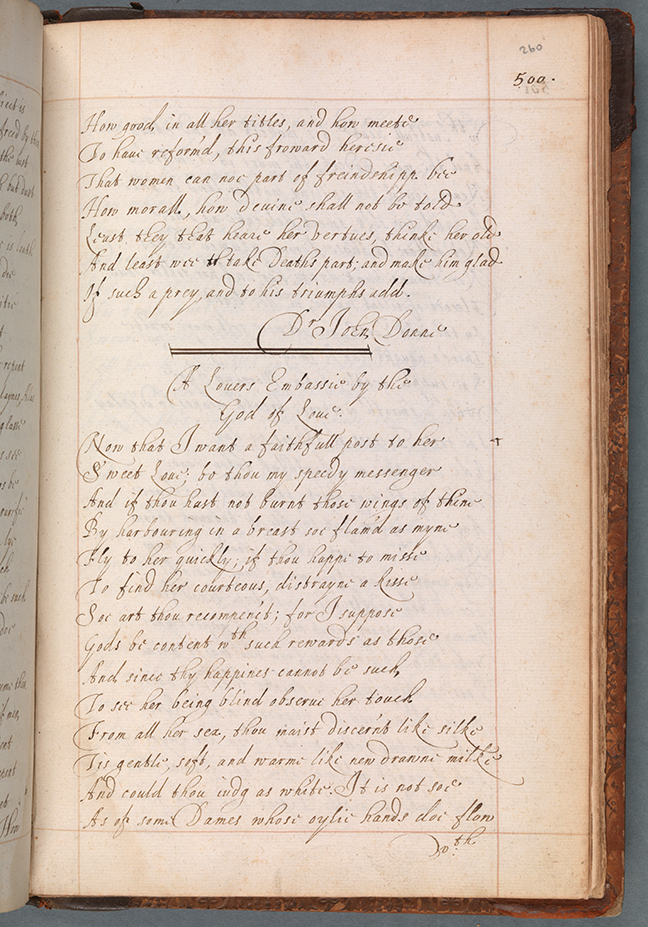 260
500.
How good, in all her titles, and how meete
To haue reformd, this froward heresie
That women can not part of freindshipp bee
How morall, how devine shall not be told
Least they that heare her vertues, thinke her old
And least wee take Deaths part; and make him glad
Of such a prey, and to his triumphs add.
Dr John Donne
A Lovers Embassie by the
God of Loue.
Now that I want a faithfull post to her
Sweet Loue; be thou my speedy messenger
And if thou hast not burnt those wings of thine
By harbouring in a breast soe flamd as myne
Fly to her quickly; if thou happe to misse
To find her courteous, distrayne a kisse
Soe art thou recompenc't; for I suppose
Gods be content wth such rewards as those
And since thy happines cannot be such,
To see her being blind observe her touch
From all her sex, thou maist discernt like silke
Tis gentle, soft, and warme like new drawne milke
And could thou iudg as white. It is not soe
As of some Dames whose oylie hands doe flow
wth